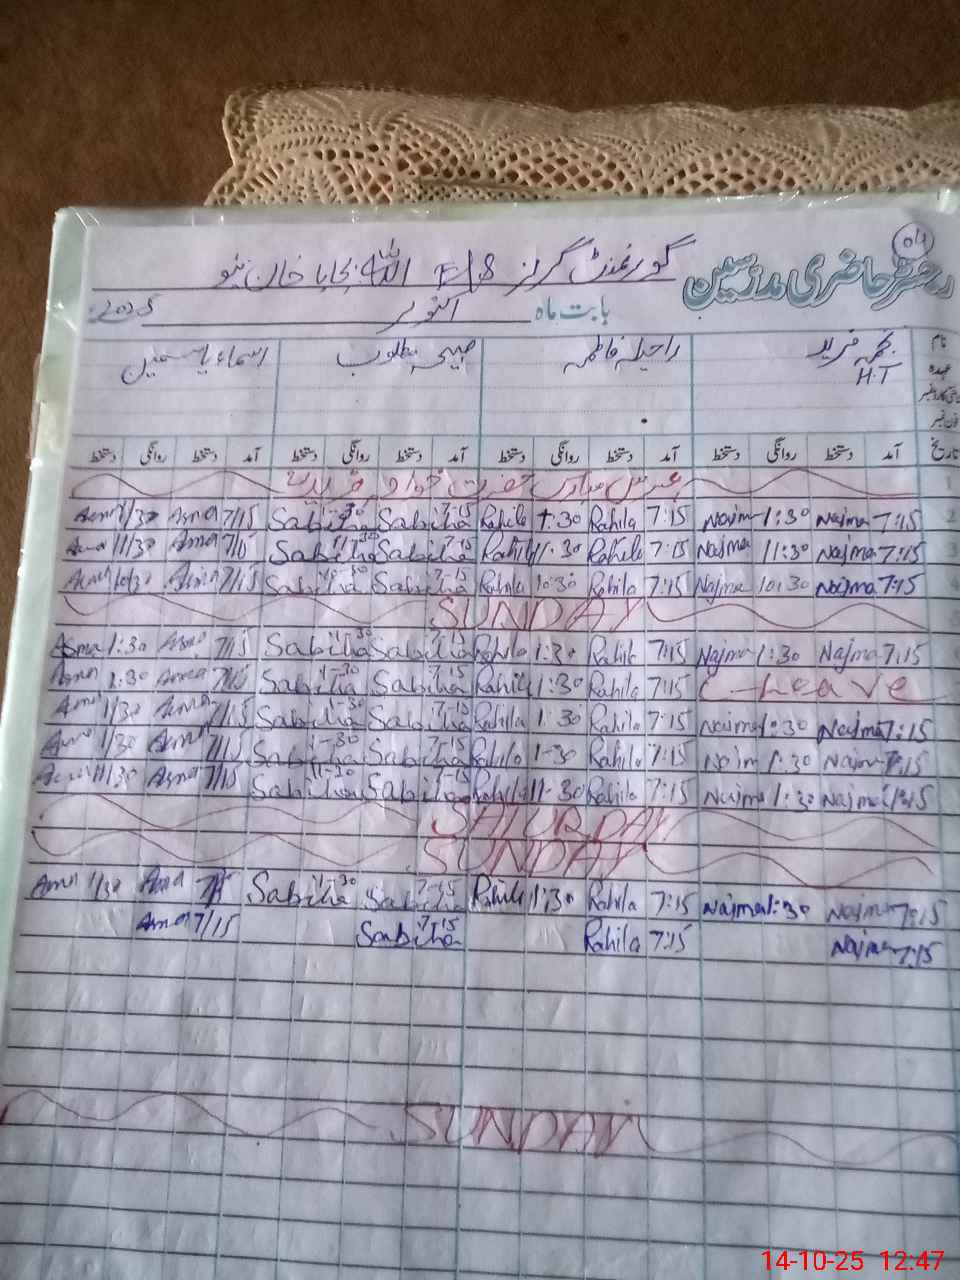 04
رجسٹر حاضری مدرسین
گورنمنٹ گرلز E/S اللہ بچایا خان
بابت ماہ اکتوبر 2025ء
نام نجمہ فرید راحیلہ فاطمہ صبیحہ مطلوب اسماء یاسمین
عہدہ H.T
تاریخ آمد دستخط روانگی دستخط آمد دستخط روانگی دستخط آمد دستخط روانگی دستخط آمد دستخط روانگی دستخط
1 عرس مبارک حضرت خواجہ فرید
2 Asma 1/30 Asma 7/15 Sabiha 1-30 Sabiha 7-15 Rahila 1:30 Rahila 7:15 Najma 1:30 Najma 7:15
3 Asma 11/30 Asma 7/15 Sabiha 11-30 Sabiha 7-15 Rahila 11:30 Rahila 7:15 Najma 11:30 Najma 7:15
4 Asma 10/30 Asma 7/15 Sabiha 10-30 Sabiha 7-15 Rahila 10:30 Rahila 7:15 Najma 10:30 Najma 7:15
SUNDAY
Asma 1:30 Asma 7/15 Sabiha 1-30 Sabiha 7-15 Rahila 1:30 Rahila 7:15 Najma 1:30 Najma 7:15
Asma 1:30 Asma 7/15 Sabiha 1-30 Sabiha 7-15 Rahila 1:30 Rahila 7:15 C-Leave
Asma 1/30 Asma 7/15 Sabiha 1-30 Sabiha 7-15 Rahila 1:30 Rahila 7:15 Najma 1:30 Najma 7:15
Asma 1/30 Asma 7/15 Sabiha 1-30 Sabiha 7-15 Rahila 1-30 Rahila 7:15 Najm 1:30 Najma 7:15
Asma 11/30 Asma 7/15 Sabiha 11-30 Sabiha 7-15 Rahila 11-30 Rahila 7:15 Najma 1:30 Najma 7:15
SATURDAY
SUNDAY
Asma 1/30 Asma 7/15 Sabiha 1-30 Sabiha 7-15 Rahila 1:30 Rahila 7:15 Najma 1:30 Najma 7:15
Asma 7/15 Sabiha 7-15 Rahila 7:15 Najma 7:15
SUNDAY
14-10-25 12:47